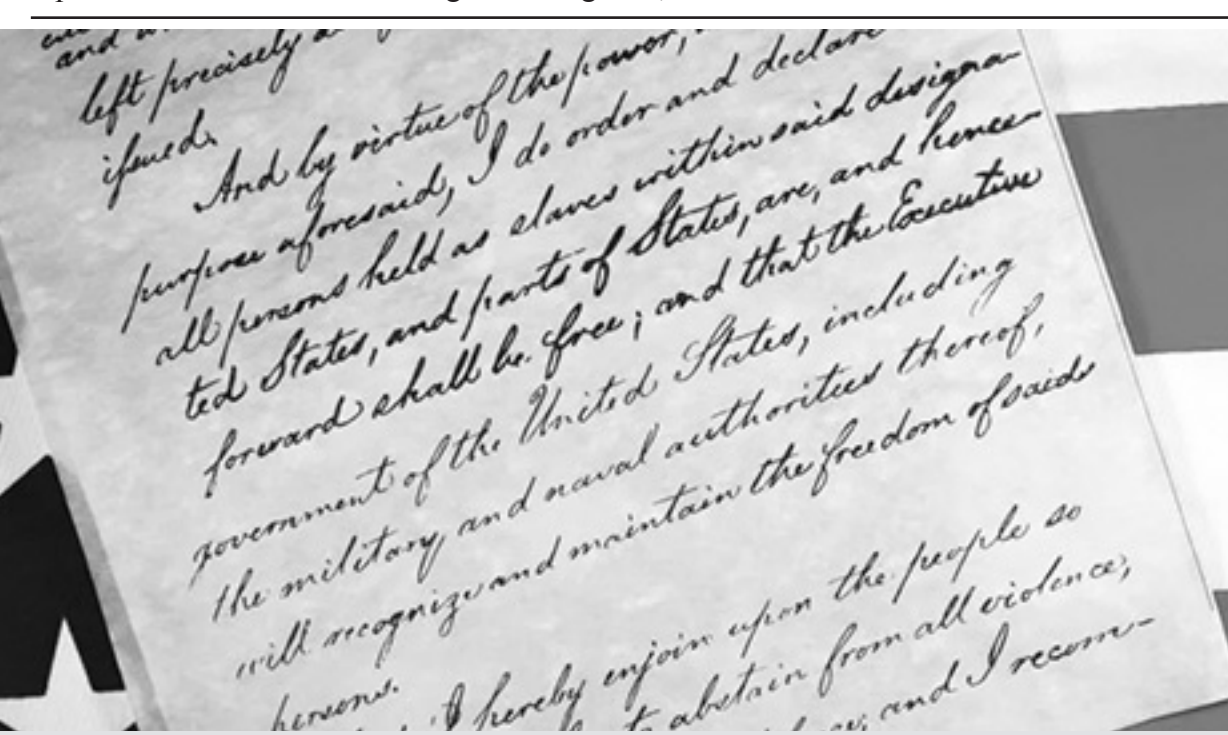 and
left precisely
issued.
And by virtue of the power,
purpose aforesaid, I do order and declare
all persons held as slaves within said designa-
ted States, and parts of States, are, and hence-
forward shall be free; and that the Executive
government of the United States, including
the military and naval authorities thereof,
will recognize and maintain the freedom of said
persons.
I hereby enjoin upon the people so
to abstain from all violence,
and I recom-